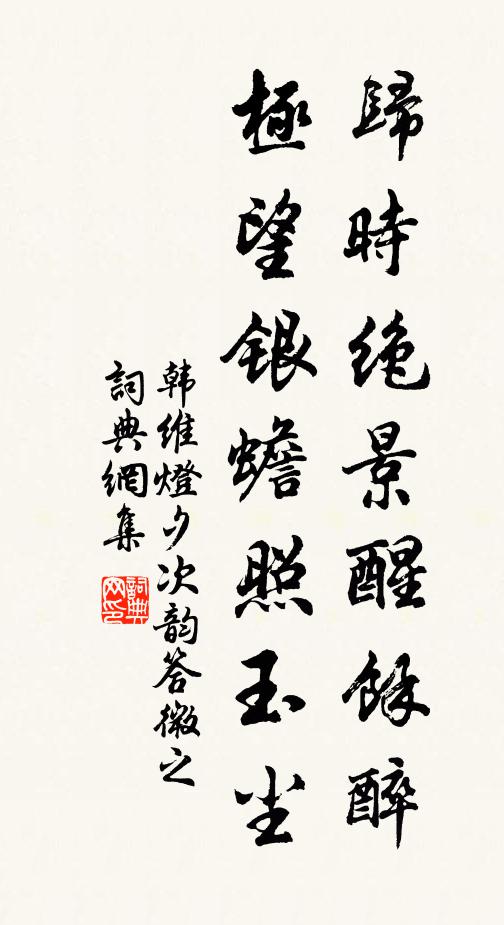 歸時绝景醒餘醉
極望銀蟾照玉尘
韩维燈夕次韵答微之
詞典網集
詞典网印